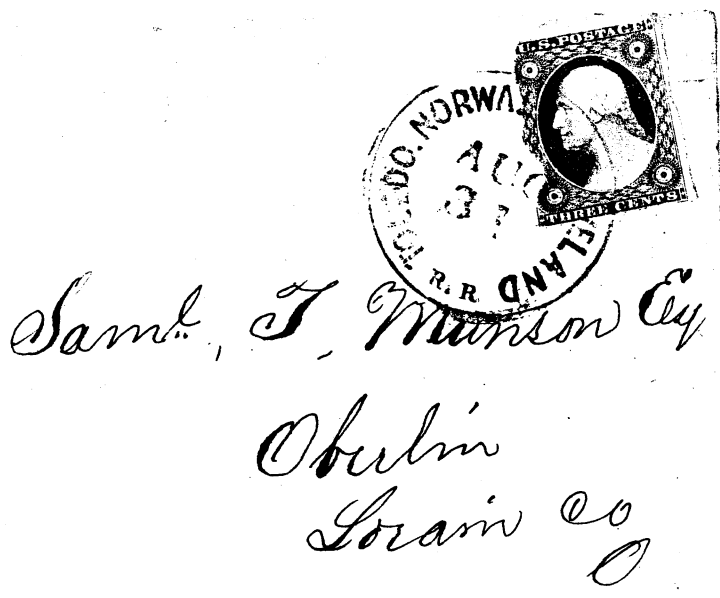 U.S. POSTAGE
THREE CENTS
TOLEDO. NORWA ELAND
R. R
AUG
Saml. T. Munson Esq
Oberlin
Lorain Co
O